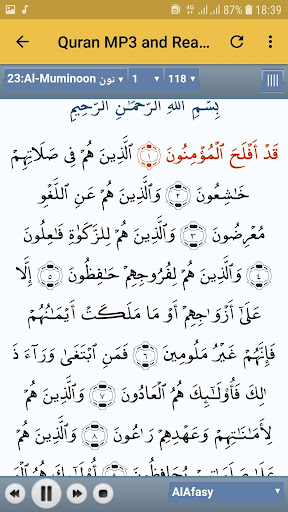 87% 18:39
Quran MP3 and Rea...
23:Al-Muminoon نون 1 118
بِسْمِ اللَّهِ الرَّحْمَٰنِ الرَّحِيمِ
قَدْ أَفْلَحَ الْمُؤْمِنُونَ ۝١ الَّذِينَ هُمْ فِي صَلَاتِهِمْ
خَاشِعُونَ ۝٢ وَالَّذِينَ هُمْ عَنِ اللَّغْوِ
مُعْرِضُونَ ۝٣ وَالَّذِينَ هُمْ لِلزَّكَوٰةِ فَاعِلُونَ
۝٤ وَالَّذِينَ هُمْ لِفُرُوجِهِمْ حَافِظُونَ ۝٥ إِلَّا
عَلَىٰ أَزْوَاجِهِمْ أَوْ مَا مَلَكَتْ أَيْمَانُهُمْ
فَإِنَّهُمْ غَيْرُ مَلُومِينَ ۝٦ فَمَنِ ابْتَغَىٰ وَرَآءَ
ذَٰلِكَ فَأُولَٰئِكَ هُمُ الْعَادُونَ ۝٧ وَالَّذِينَ هُمْ
لِأَمَانَاتِهِمْ وَعَهْدِهِمْ رَاعُونَ ۝٨ وَالَّذِينَ هُمْ
عَلَىٰ صَلَوَاتِهِمْ يُحَافِظُونَ ۝٩ أُولَٰئِكَ هُمُ
AlAfasy